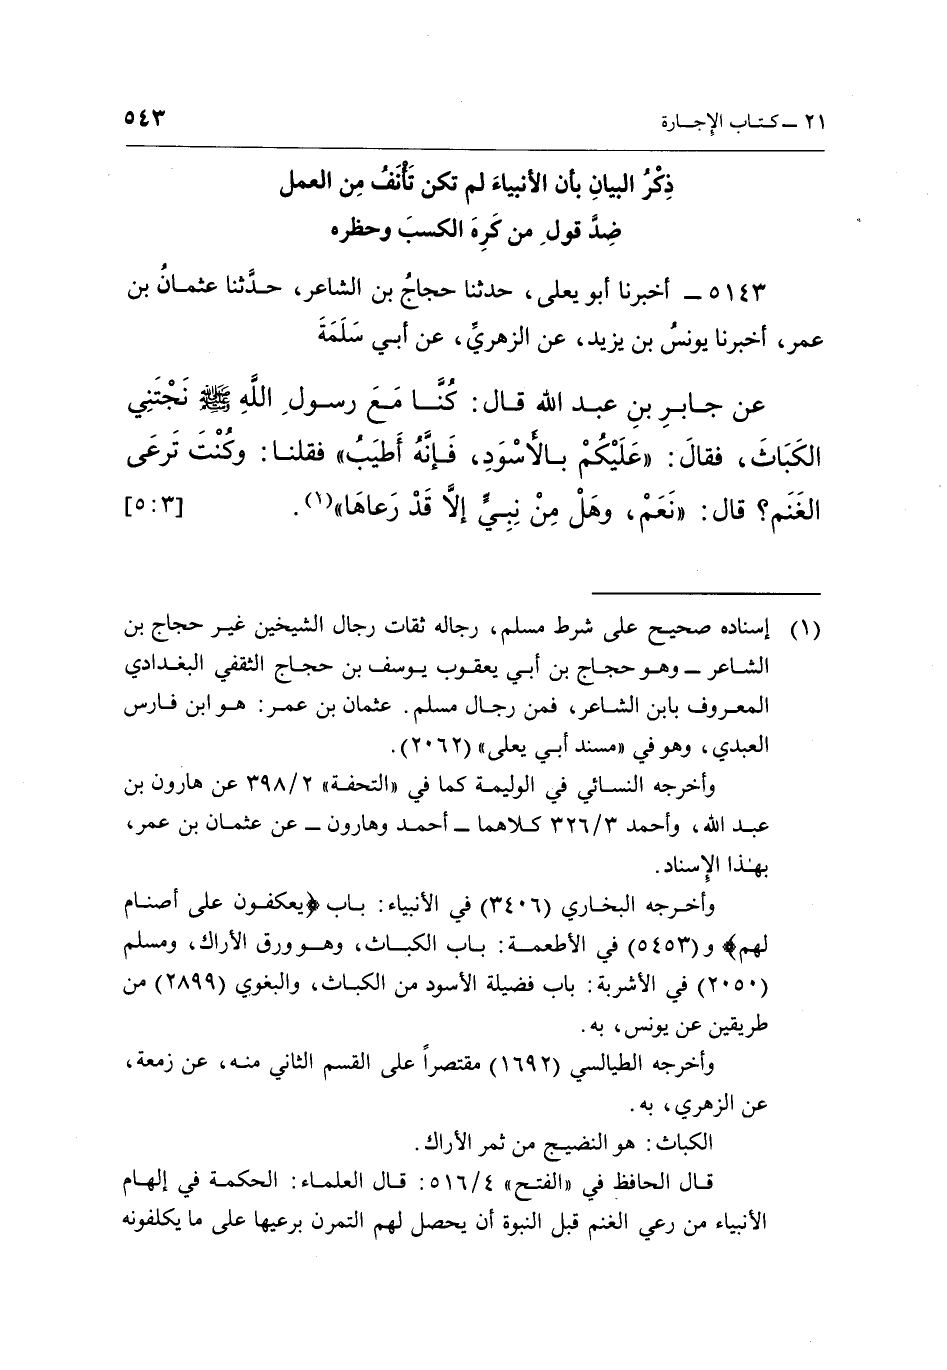 ٢١ ــ كتاب الإجارة ٥٤٣
ذِكْرُ البيانِ بأن الأنبياءَ لم تكن تَأْنَفُ مِن العمل
ضِدَّ قولِ من كَرِهَ الكسبَ وحظره
٥١٤٣ ــ أخبرنا أبو يعلى، حدثنا حجاجُ بن الشاعر، حدَّثنا عثمانُ بن
عمر، أخبرنا يونسُ بن يزيد، عن الزهريِّ، عن أبي سَلَمَةَ
عن جابرِ بنِ عبد الله قال: كُنَّا مَعَ رسولِ اللَّهِ ﷺ نَجْتَنِي
الكَبَاثَ، فقالَ: «عَلَيْكُمْ بالأَسْوَدِ، فَإِنَّهُ أَطيَبُ» فقلنا: وكُنْتَ تَرعَى
الغَنَم؟ قال: «نَعَمْ، وهَلْ مِنْ نِبيٍّ إلَّا قَدْ رَعاهَا»(١). [٣: ٥]
(١) إسناده صحيح على شرط مسلم، رجاله ثقات رجال الشيخين غير حجاج بن
الشاعر ــ وهو حجاج بن أبي يعقوب يوسف بن حجاج الثقفي البغدادي
المعروف بابن الشاعر، فمن رجال مسلم. عثمان بن عمر: هو ابن فارس
العبدي، وهو في «مسند أبي يعلى» (٢٠٦٢).
وأخرجه النسائي في الوليمة كما في «التحفة» ٣٩٨/٢ عن هارون بن
عبد الله، وأحمد ٣٢٦/٣ كلاهما ــ أحمد وهارون ــ عن عثمان بن عمر،
بهذا الإسناد.
وأخرجه البخاري (٣٤٠٦) في الأنبياء: باب ﴿يعكفون على أصنام
لهم﴾ و(٥٤٥٣) في الأطعمة: باب الكباث، وهو ورق الأراك، ومسلم
(٢٠٥٠) في الأشربة: باب فضيلة الأسود من الكباث، والبغوي (٢٨٩٩) من
طريقين عن يونس، به.
وأخرجه الطيالسي (١٦٩٢) مقتصراً على القسم الثاني منه، عن زمعة،
عن الزهري، به.
الكباث: هو النضيج من ثمر الأراك.
قال الحافظ في «الفتح» ٥١٦/٤: قال العلماء: الحكمة في إلهام
الأنبياء من رعي الغنم قبل النبوة أن يحصل لهم التمرن برعيها على ما يكلفونه